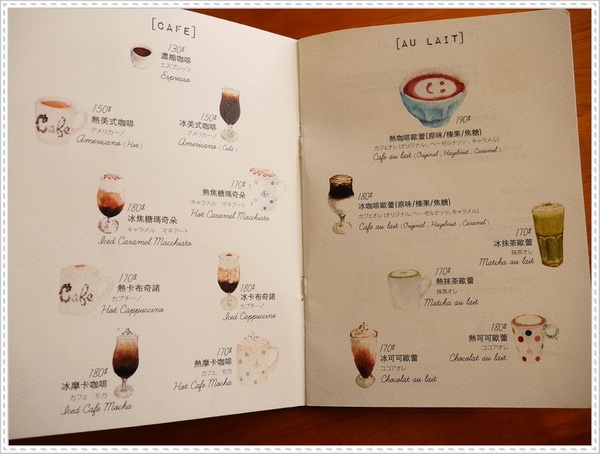 [CAFE]
130$
濃縮咖啡
エスプレッソ
Espresso
150$
熱美式咖啡
アメリカーノ
Americano (Hot)
150$
冰美式咖啡
アメリカーノ
Americano (Cold)
180$
冰焦糖瑪奇朵
キャラメル マキアート
Iced Caramel Macchiato
170$
熱焦糖瑪奇朵
キャラメル マキアート
Hot Caramel Macchiato
Cafe
170$
熱卡布奇諾
カプチーノ
Hot Cappuccino
180$
冰卡布奇諾
カプチーノ
Iced Cappuccino
Cafe
180$
冰摩卡咖啡
カフェ モカ
Iced Cafe Mocha
170$
熱摩卡咖啡
カフェ モカ
Hot Cafe Mocha
[AU LAIT]
190$
熱咖啡歐蕾(原味/榛果/焦糖)
カフェオレ(オリジナル、ヘーゼルナッツ、キャラメル)
Cafe au lait (Original, Hazelnut, Caramel)
180$
冰咖啡歐蕾(原味/榛果/焦糖)
カフェオレ(オリジナル、ヘーゼルナッツ、キャラメル)
Cafe au lait (Original, Hazelnut, Caramel)
170$
冰抹茶歐蕾
抹茶オレ
Matcha au lait
170$
熱抹茶歐蕾
抹茶オレ
Matcha au lait
170$
冰可可歐蕾
ココアオレ
Chocolat au lait
180$
熱可可歐蕾
ココアオレ
Chocolat au lait